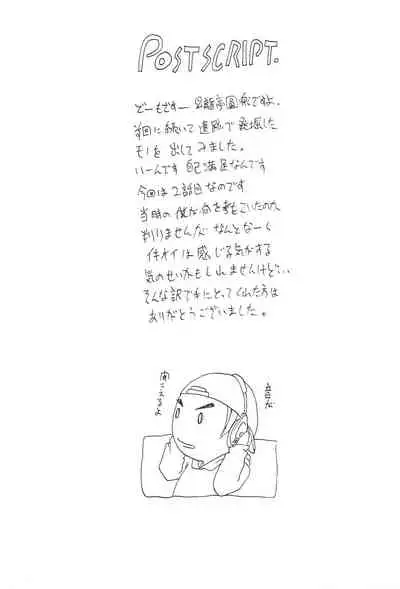 POSTSCRIPT.
どーもですー 昇龍亭圓船ですよ。
前回に続いて遺跡で発掘した
モノを出してみました。
いーんです 自己満足なんです
今回は2話目なのです
当時の僕が何を考えていたのか
判りませんが なんとなーく
イキオイは感じる気がする
気のせいかもしれませんけど…
そんな訳で手にとってくれた方は
ありがとうございました。
聞こえるよ